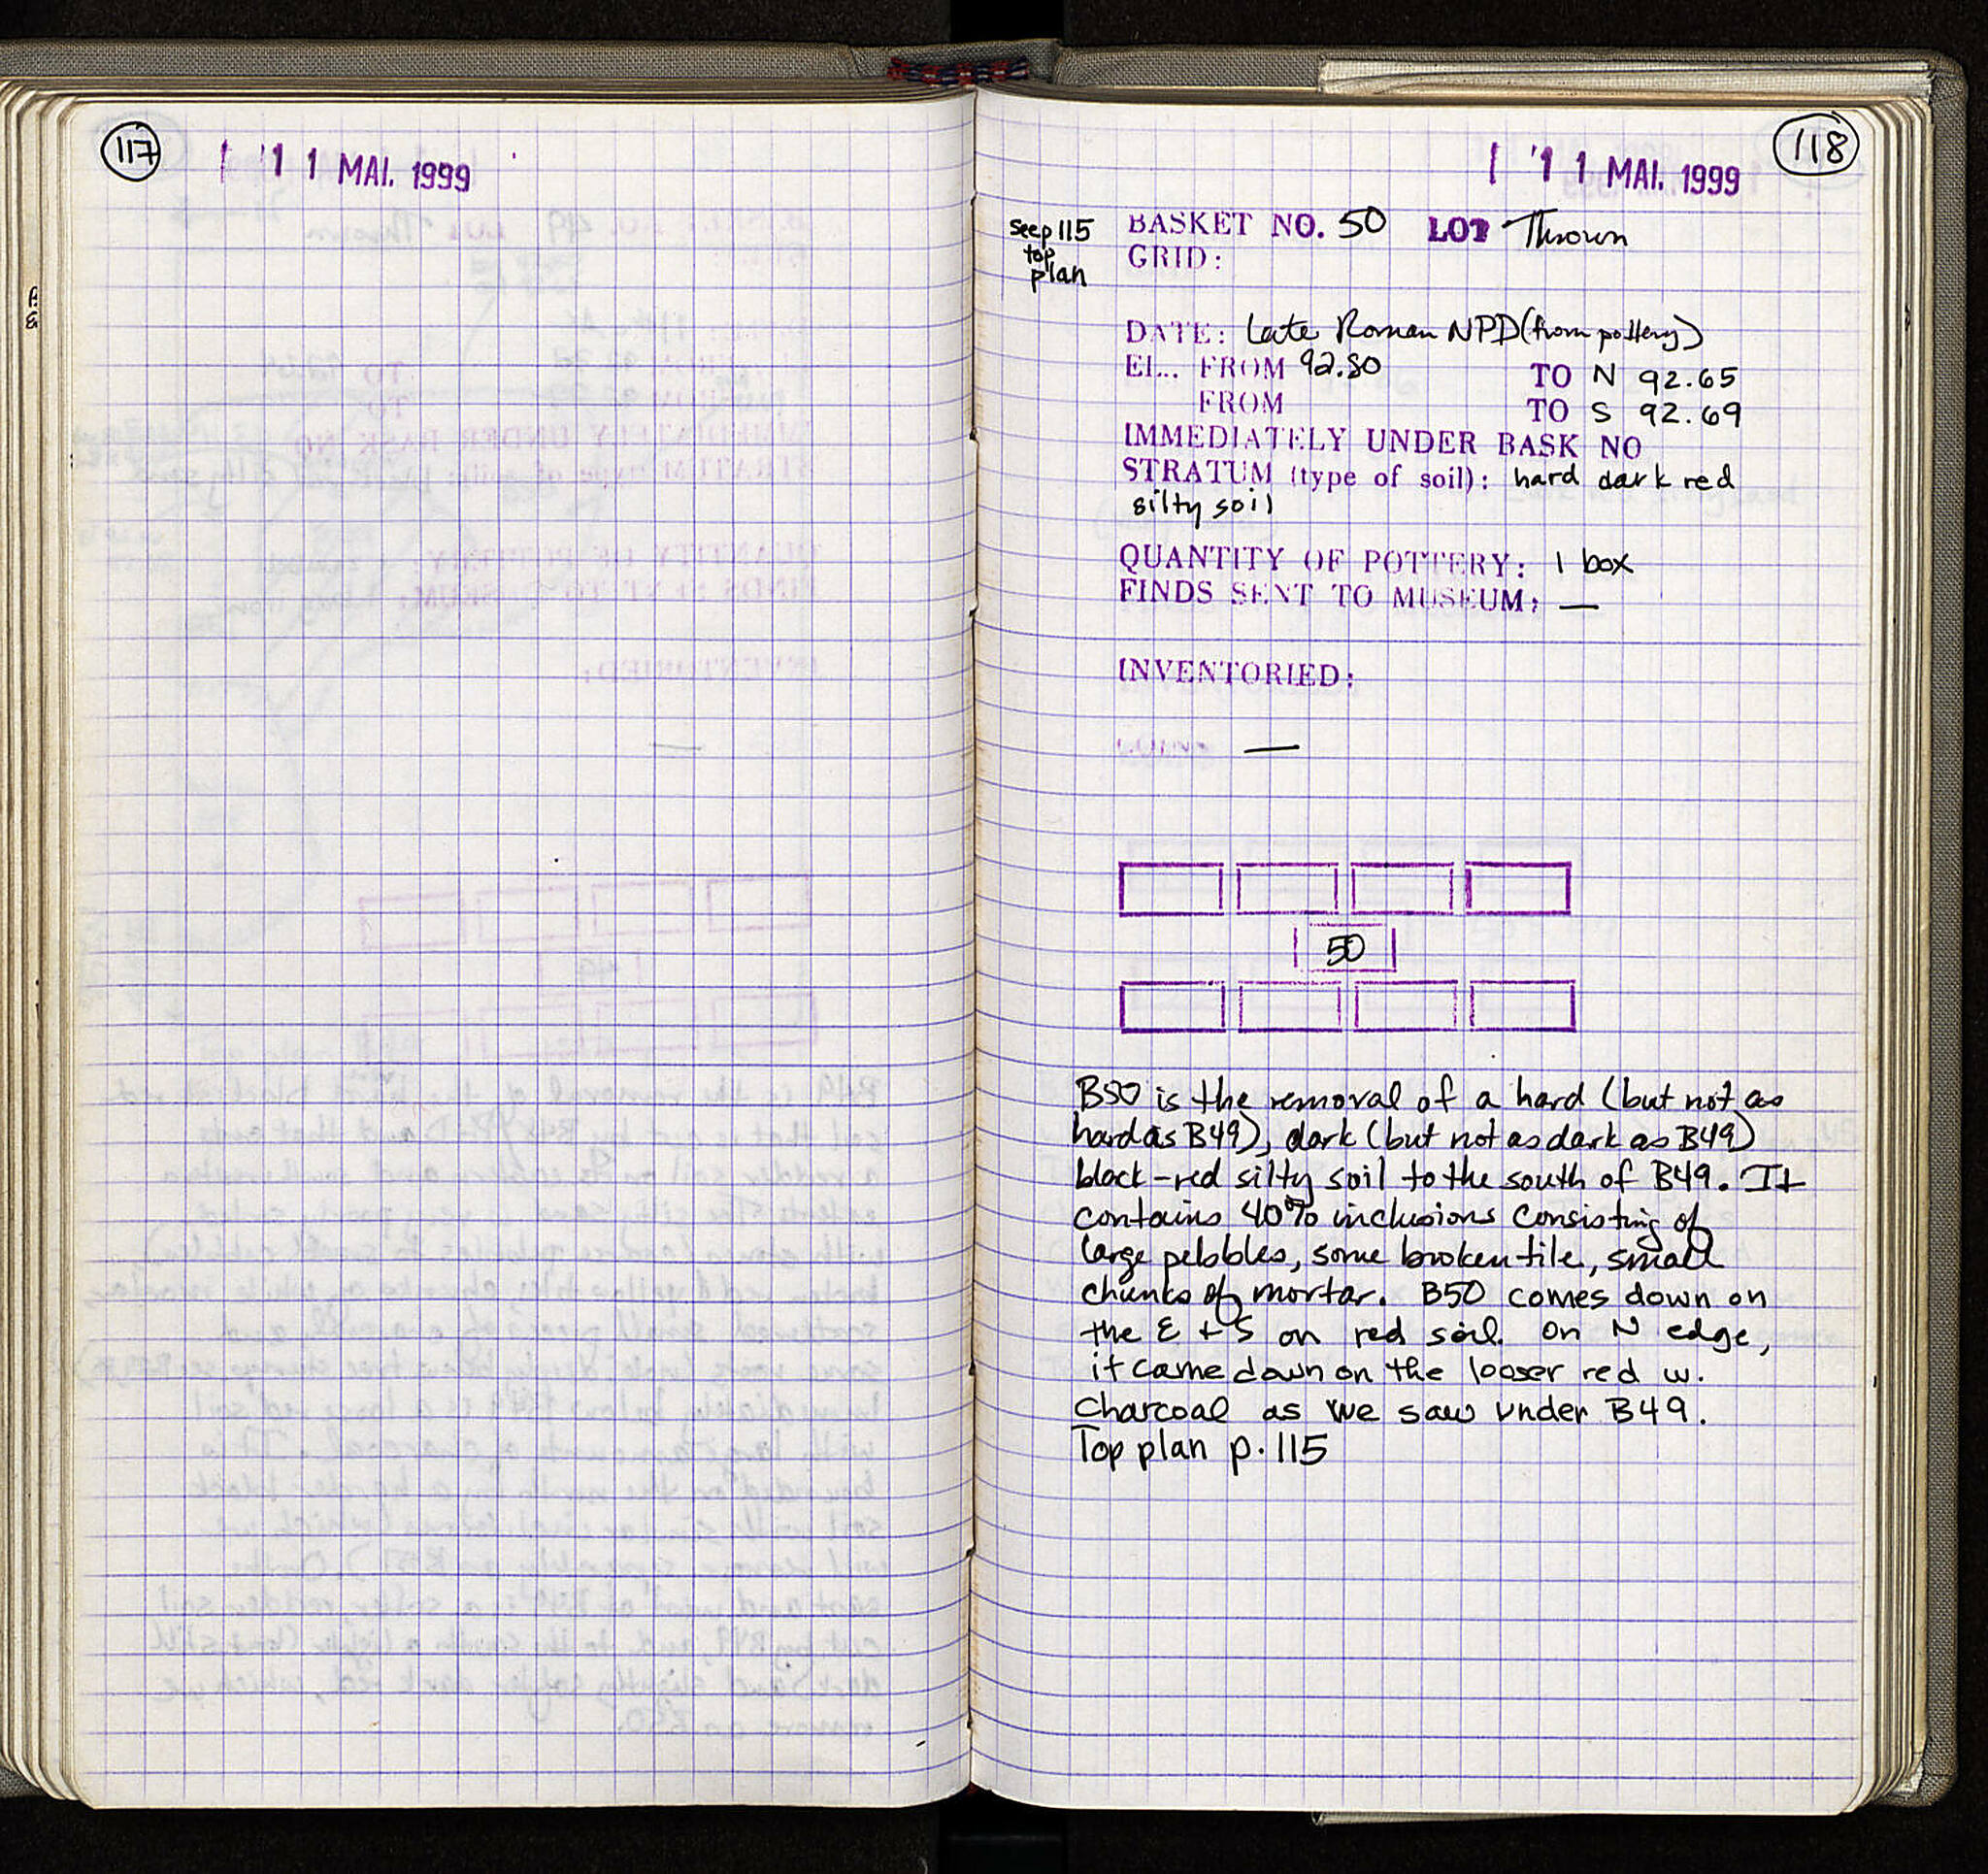 117
11 MAI. 1999
118
11 MAI. 1999
see p 115
top
plan
BASKET NO. 50 LOT Thrown
GRID:
DATE: Late Roman NPD (from pottery)
EL. FROM 92.80 TO N 92.65
FROM TO S 92.69
IMMEDIATELY UNDER BASK NO
STRATUM (type of soil): hard dark red
silty soil
QUANTITY OF POTTERY: 1 box
FINDS SENT TO MUSEUM: —
INVENTORIED:
—
50
B50 is the removal of a hard (but not as
hard as B49), dark (but not as dark as B49)
black-red silty soil to the south of B49. It
contains 40% inclusions consisting of
large pebbles, some broken tile, small
chunks of mortar. B50 comes down on
the E + S on red soil. On N edge,
it came down on the looser red w.
charcoal as we saw under B49.
Top plan p. 115